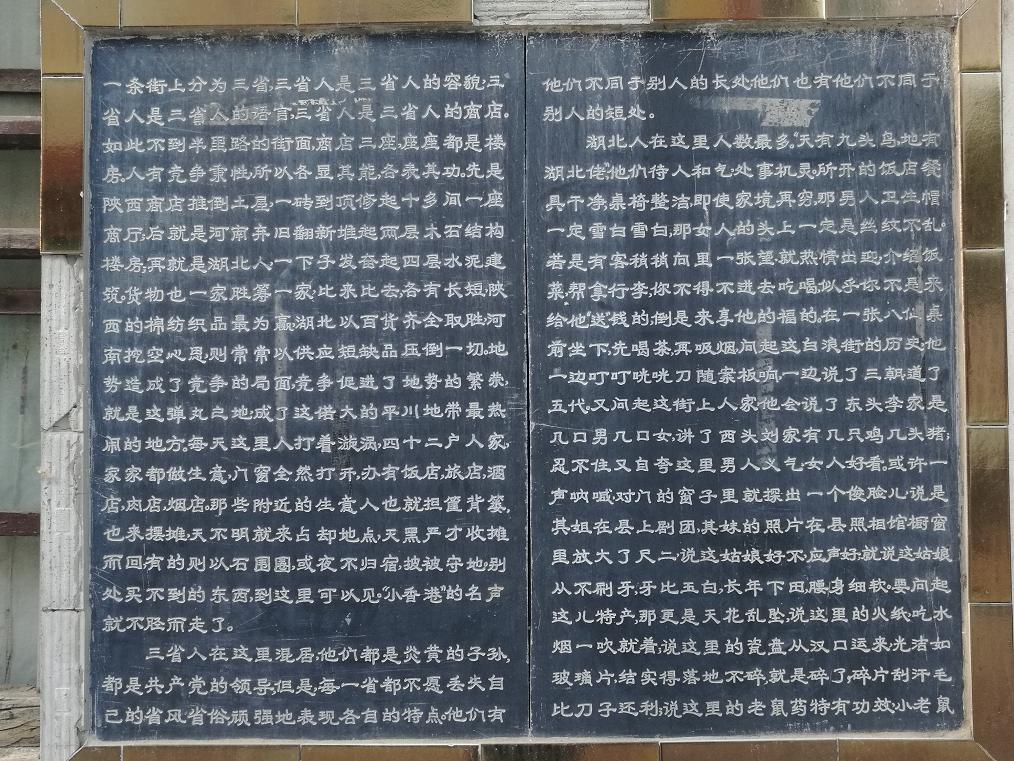 一条街上分为三省,三省人是三省人的容貌,三
省人是三省人的语言,三省人是三省人的商店。
如此不到半里路的街面,商店三座,座座都是楼
房。人有竞争秉性,所以各显其能,各表其功。先是
陕西商店推倒土屋,一砖到顶修起十多间一座
商厅;后就是河南弃旧翻新堆起两层木石结构
楼房;再就是湖北人,一下子发奋起四层水泥建
筑。货物也一家胜筹一家,比来比去,各有长短,陕
西的棉纺织品最为赢,湖北以百货齐全取胜,河
南挖空心思,则常常以供应短缺品压倒一切。地
势造成了竞争的局面,竞争促进了地势的繁荣,
就是这弹丸之地,成了这偌大的平川地带最热
闹的地方。每天这里人打着漩涡,四十二户人家,
家家都做生意,门窗全然打开,办有饭店,旅店,酒
店,肉店,烟店。那些附近的生意人也就担筐背篓,
也来摆摊,天不明就来占却地点,天黑严才收摊
而回,有的则以石围圈,或夜不归宿,披被守地。别
处买不到的东西,到这里可以见。“小香港”的名声
就不胫而走了。
三省人在这里混居,他们都是炎黄的子孙,
都是共产党的领导,但是,每一省都不愿丢失自
己的省风省俗,顽强地表现各自的特点。他们有
他们不同于别人的长处,他们也有他们不同于
别人的短处。
湖北人在这里人数最多。“天有九头鸟,地有
湖北佬”,他们待人和气,处事机灵。所开的饭店餐
具干净,桌椅整洁,即使家境再穷,那男人卫生帽
一定雪白雪白,那女人的头上一定是丝纹不乱。
若是有客稍稍向里一张望,就热情出迎,介绍饭
菜,帮拿行李,你不得不进去吃喝,似乎你不是来
给他“送”钱的,倒是来享他的福的。在一张八仙桌
前坐下,先喝茶,再吸烟,问起这白浪街的历史,他
一边叮叮咣咣刀随案板响,一边说了三朝,道了
五代。又问起这街上人家,他会说了东头李家是
几口男几口女,讲了西头刘家有几只鸡几头猪;
忍不住又自夸这里男人义气,女人好看。或许一
声呐喊,对门的窗子里就探出一个俊脸儿,说是
其姐在县上剧团,其妹的照片在县照相馆橱窗
里放大了尺二,说这姑娘好不,应声好,就说这姑娘
从不刷牙,牙比玉白,长年下田,腰身细软。要问起
这儿特产,那更是天花乱坠,说这里的火纸,吃水
烟一吹就着;说这里的瓷盘从汉口运来,光洁如
玻璃片,结实得落地不碎,就是碎了,碎片刮汗毛
比刀子还利;说这里的老鼠药特有功效,小老鼠